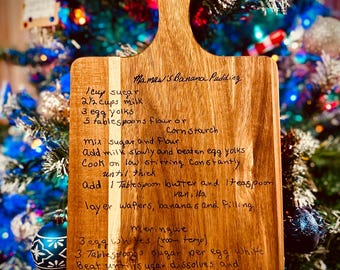 Mamaw's Banana Pudding
1 cup sugar
2½ cups milk
3 egg yolks
3 tablespoons flour or
Cornstarch
mix sugar and flour
Add milk slowly and beaten egg yolks
Cook on low stirring constantly
until thick
add 1 Tablespoon butter and 1 teaspoon
vanilla
layer wafers, bananas and filling.
meringue
3 egg whites (room temp)
3 Tablespoons sugar per egg white
Beat until sugar dissolves and